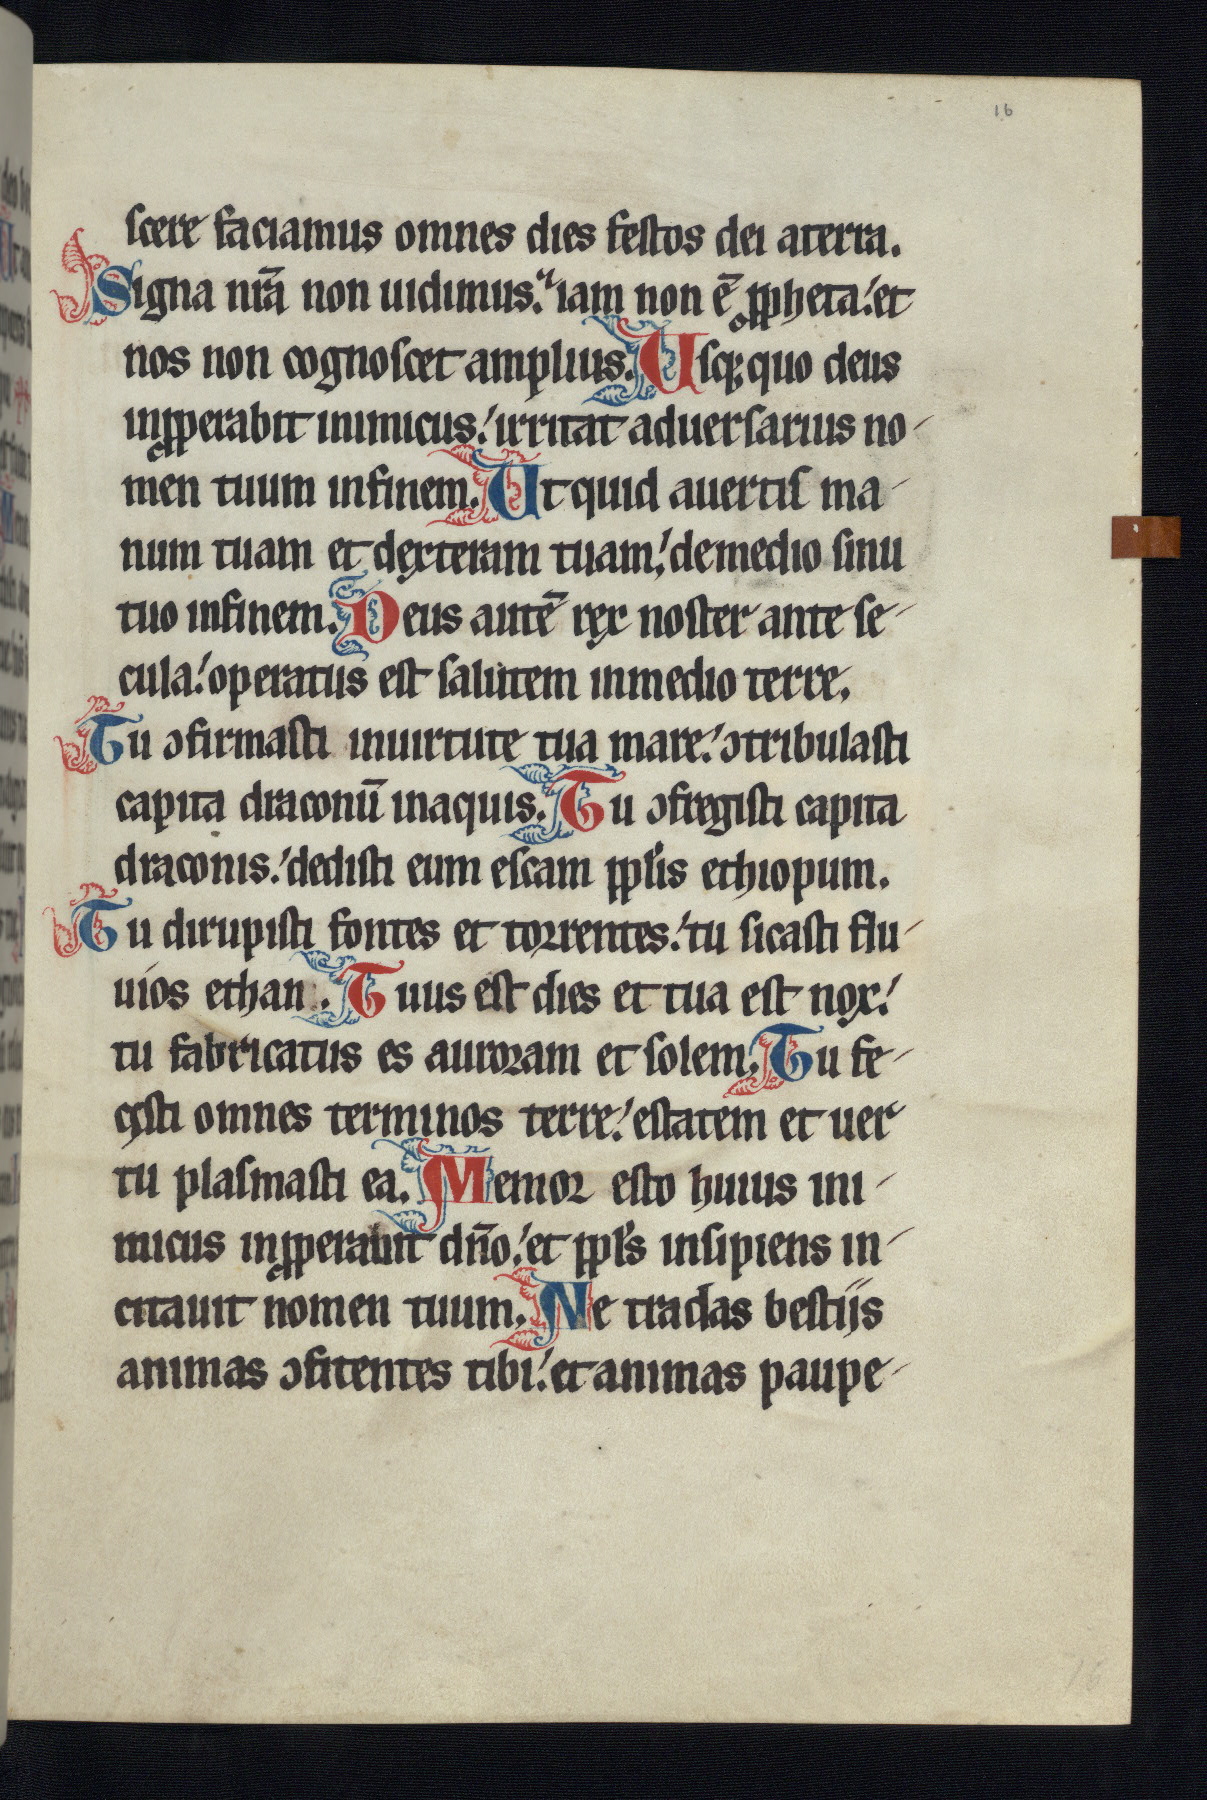 16
scere faciamus omnes dies festos dei aterra.
Signa nr̄a non uidimus. iam non ē ꝓpheta. et
nos non cognoscet amplius. Usq; quo deus
inꝓperabit inimicus. irritat aduersarius no-
men tuum infinem. Ut quid auertis ma-
num tuam et dexteram tuam, demedio sinu
tuo infinem. Deus autē rex noster ante se-
cula. operatus est salutem inmedio terre.
Tu ɔfirmasti inuirtute tua mare. ɔtribulasti
capita draconū inaquis. Tu ɔfregisti capita
draconis. dedisti eum escam ppl'is ethiopum.
Tu dirupisti fontes et torrentes. tu sicasti flu-
uios ethan. Tuus est dies et tua est nox.
tu fabricatus es auroram et solem. Tu fe-
cysti omnes terminos terre. estatem et uer
tu plasmasti ea. Memor esto huius ini-
micus inꝓperabit dn̄o. et ppl's insipiens in-
citauit nomen tuum. Ne tradas bestijs
animas ɔfitentes tibi. et animas paupe-
16